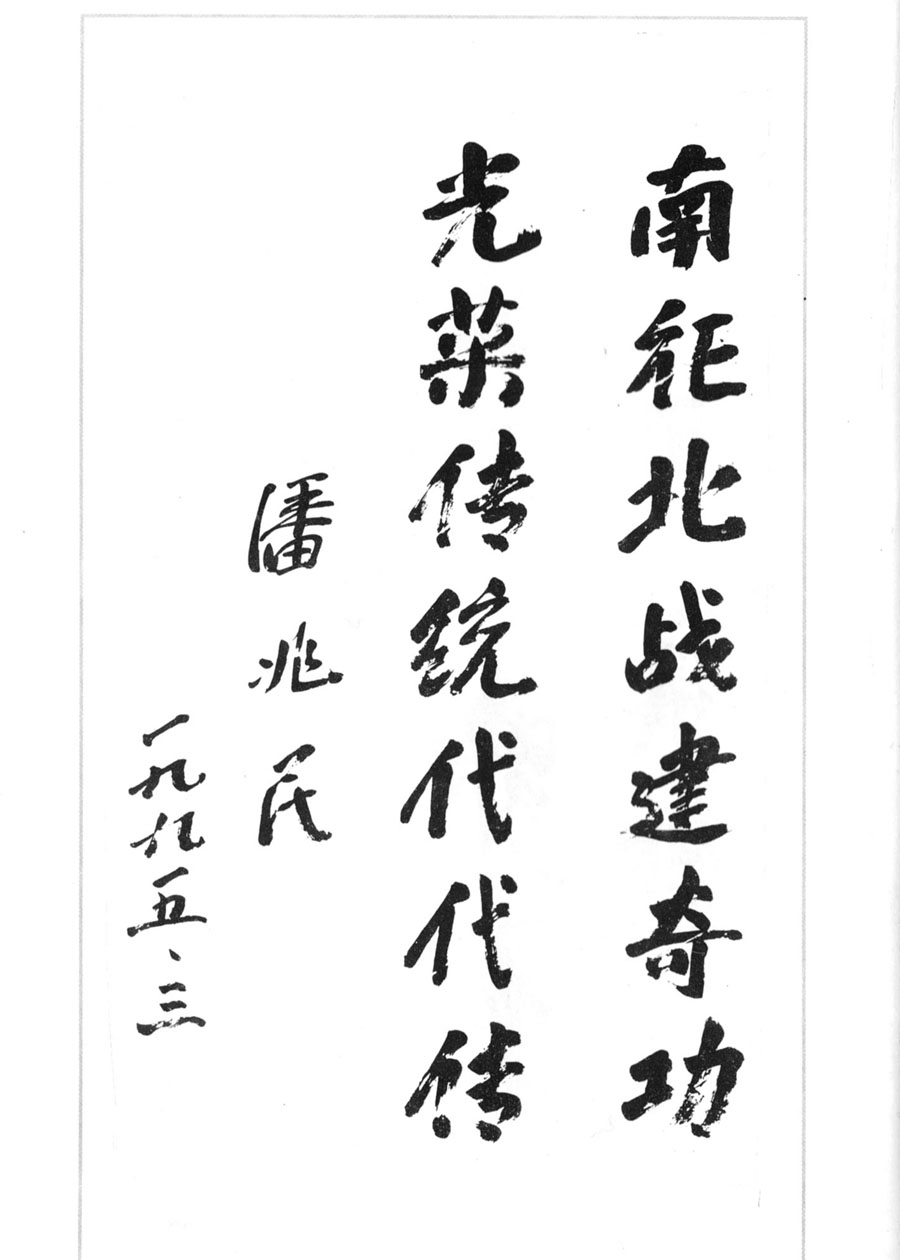 南征北战建奇功
光荣传统代代传
潘兆民
一九九五、三